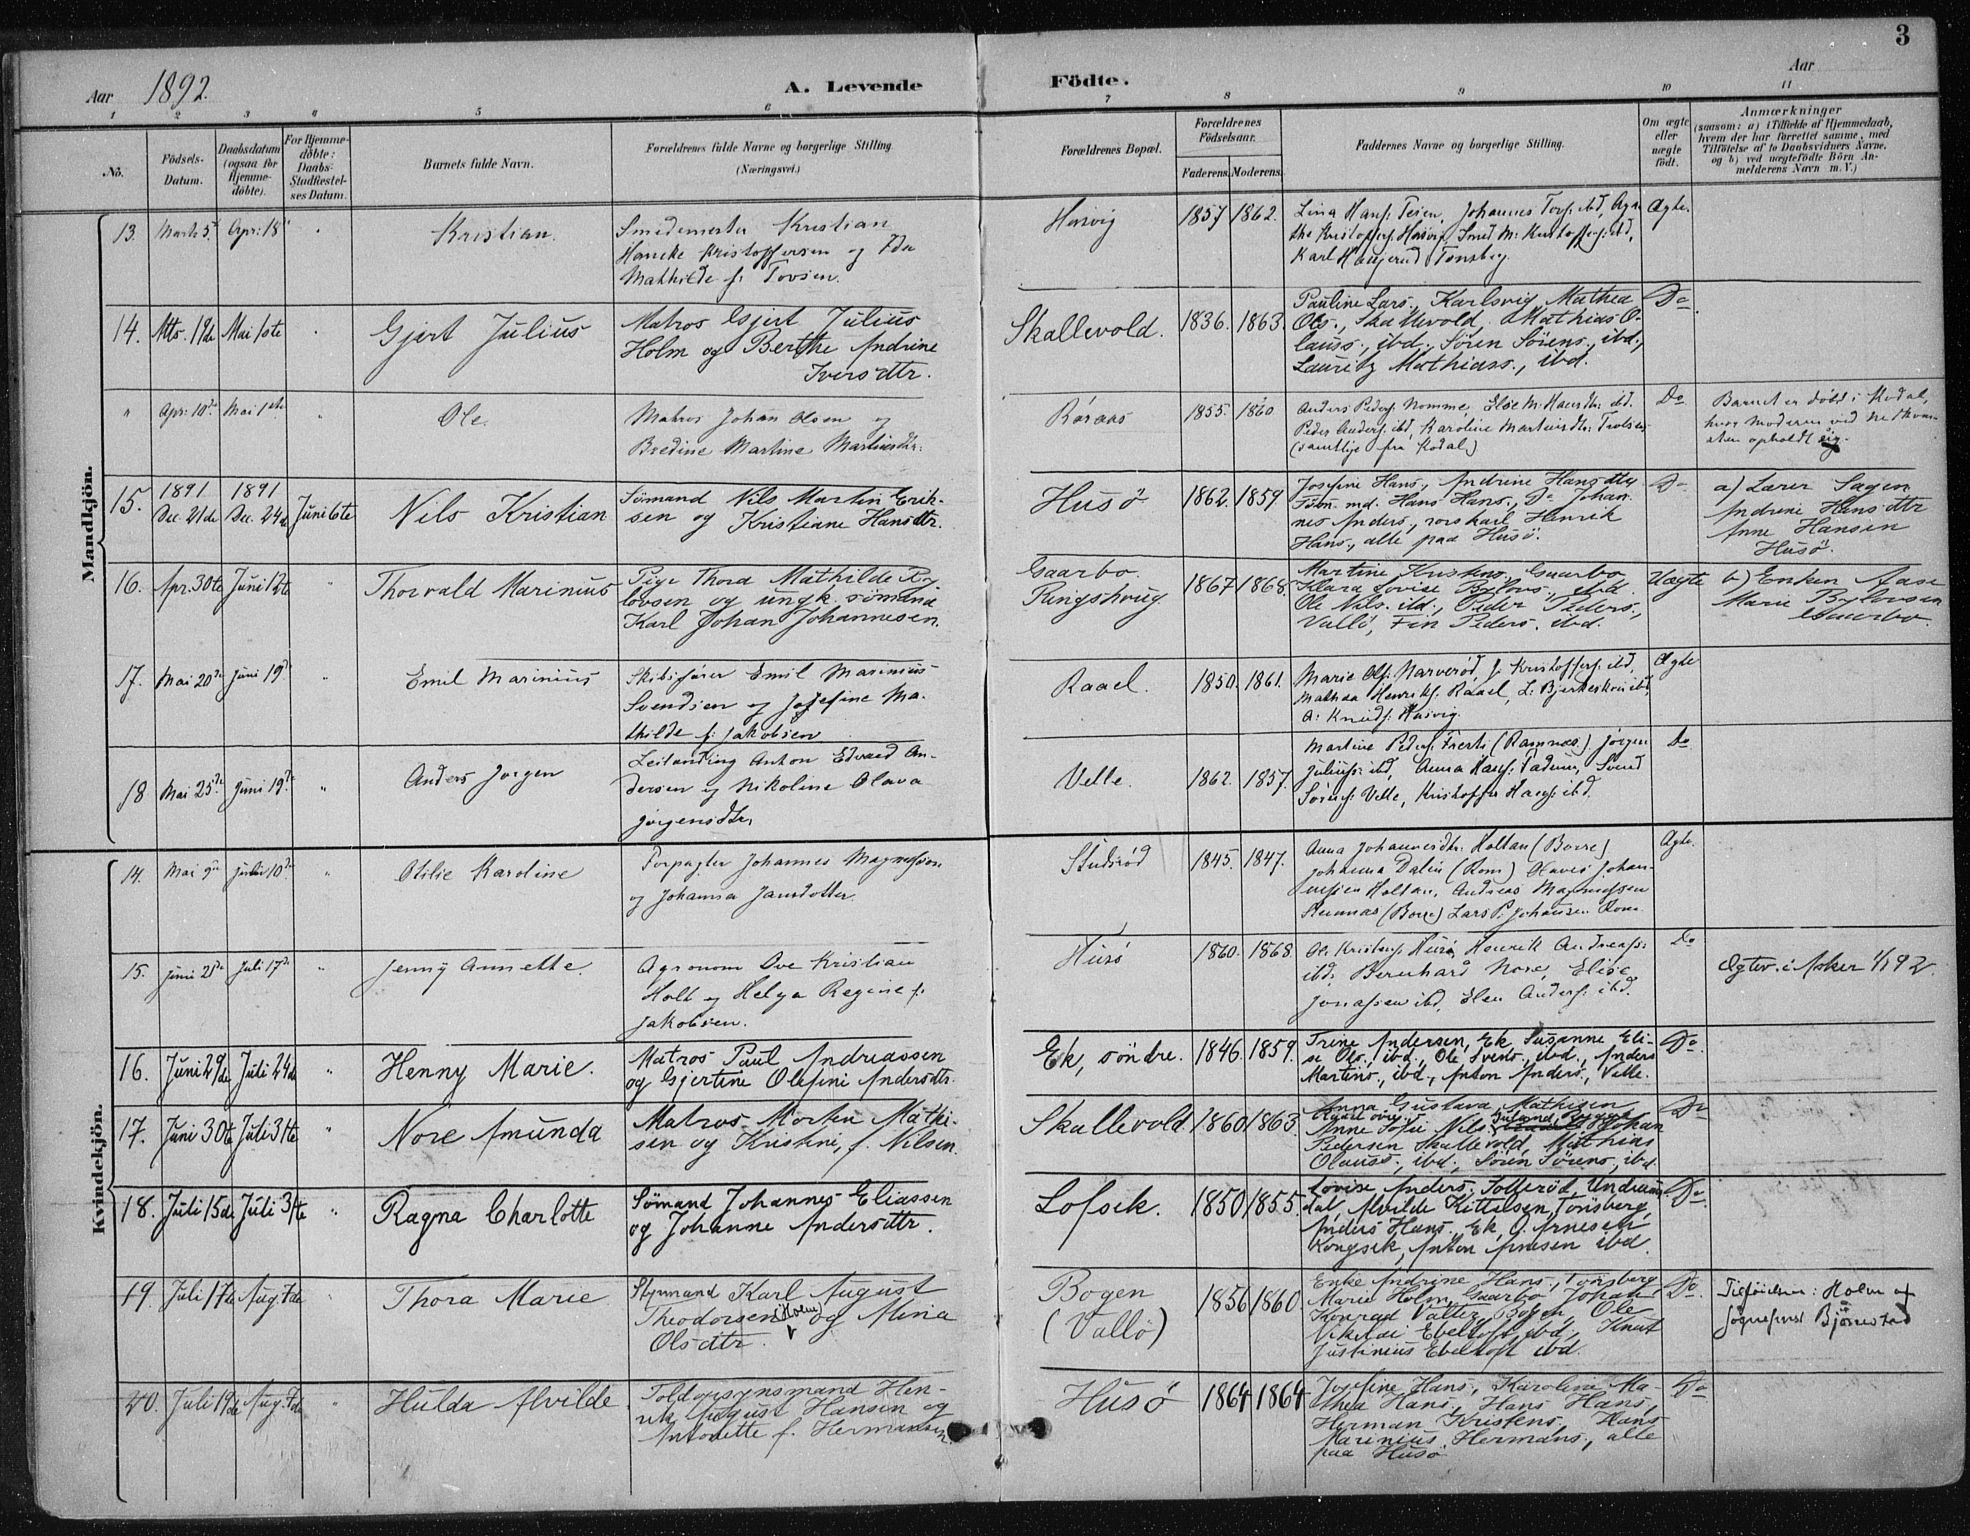 3
Aar 1892.
A. Levende Födte.
Aar
1 2 3 4 5 6 7 8 9 10 11
No.
Födsels-Datum.
Daabsdatum (ogsaa for Hjemmedöbte).
For Hjemmedöbte: Daabs-Stadfæstelses Datum.
Barnets fulde Navn.
Forældrenes fulde Navne og borgerlige Stilling (Næringsvei.)
Forældrenes Bopæl.
Forældrenes Födselsaar.
Faderens. Moderens.
Faddernes Navne og borgerlige Stilling.
Om ægte eller uægte födt.
Anmærkninger
(saasom: a) i Tilfælde af Hjemmedaab,
hvem der har forrettet samme, med
Tilföielse af to Daabsvidners Navne,
og b) ved uægtefödte Börn An-
melderens Navn m. V.)
Mandkjön.
13. Marts 5te Apr: 18 Kristian.
Smedemester Kristian
Hancke Kristoffersen og Ida
Mathilde f: Tovsen.
Husvig 1857 1862.
Lina Hans: Teien, Johannes Tors: ibd,
Karl Haugerud Tønsberg
Ægte.
14. Mts. 19de Mai 1ste Gjert Julius
Matros Gjert Julius
Holm og Berthe Andrine
Iversdtr.
Skallevold. 1836. 1863.
Pauline Lars., Karlsvig, Mathea
Ols., Skallevold, Mathias O-
lauss., ibd., Sören Sörens., ibd.,
Lauritz Mathiass., ibd.
Do
" Apr: 10de Mai 1ste Ole.
Matros Johan Olsen og
Bredine Martine Martinsdtr.
Röraas 1855. 1860
Anders Peders: Nomme, Else M: Hansdtr. ibd.
Peder Anders: ibd, Karoline Martinsdtr:
(samtlige fra Kodal)
Do
Barnet er döbt i Kodal,
hvor moderen ved nedkom-
sten opholdt sig.
15. 1891 Dec. 21de 1891 Dec. 24de Juni 6te Nils Kristian
Sömand Nils Martin Erik-
sen og Kristiane Hansdtr.
Husö 1862. 1859.
Josefine Hans., Andrine Hansdtr,
Töm. md. Hans Hans., Do Johan-
nes Anders., rorskarl Henrik
Hans., alle paa Husö.
Do
a) Lærer Sagen
Andrine Hansdtr
Anne Hansen
Husö.
16. Apr. 30te Juni 12te " Thorvald Marinius
Pige Thora Mathilde By-
lovsen og ungk. sömand
Karl Johan Johannesen.
Gaarbo.
Ringshaug 1867 1868.
Martine Kristens., Gaarbo,
Klara Lovise Bylovs., ibd.
Ole Nils. ibd., Peder Peders.,
Vallö, Fin Peders. ibd.
Uægte
b) Enken Aase
Marie Bylovsen
Gaarbo.
17. Mai 20de Juni 19de " Emil Marinius
Skibsförer Emil Marinius
Svendsen og Josefine Ma-
thilde f: Jakobsen
Raael. 1850. 1861.
Marie Ols: Narverød, J. Kristoffers: ibd,
Mathea Henriks: Raael, L: Bjerkeskov ibd,
A: Knuds: Husvig.
Ægte
18 Mai 25de Juni 19de " Anders Jorgen
Leilending Anton Edvard An-
dersen og Nikoline Olava
Jörgensdtr,
Velle. 1862. 1857.
Martine Peders: (Ramnæs) Jörgen
Julius: ibd, Anna Hans: Svend
Sörens: Velle, Kristoffer Hans: ibd.
Do
Kvindekjön.
14. Mai 9de Juli 10de " Otilie Karoline
Forpagter Johannes Magnussen
og Johanna Jansdotter
Studsröd 1845. 1847.
Anna Johannesdtr. Holtan (Borre)
Johanna Dalin (Rom) Olaves Johan-
nesen Holtan, Andreas Magnussen
(Borre) Lars P. Johansen Rom
Ægte.
15. Juni 21de Juli 17de " Jenny Annette.
Agronom Ove Kristian
Holt og Helga Regine f:
Jakobsen.
Husö 1860. 1868.
Ol: Kristens: Husö, Henrik Andreas:
ibd, Bernhard Nore, Elise
Jonassen ibd, Elen Anders: ibd.
Do
Ægtev. i Asker
16. Juni 29de Juli 24de " Henny Marie.
Matros Paul Andreassen
og Gjertine Olefine Andersdtr.
Ek, söndre. 1846. 1859.
Trine Andersen, Ek, Susanne Eli-
se Ols., ibd., Ole Svens., ibd., Anders
Martins., ibd., Anton Anders., Velle.
Do
17. Juni 30te Juli 31te " Nore Amunda
Matros Morten Mathi-
sen og Kristine, f. Nilsen.
Skallevold 1860 1863.
Anna Gustava Mathisen
Anne Sofie Nils., Johan
Pedersen Skallevold, Mathias
Olauss., ibd., Sören Sörens., ibd.
Do
18. Juli 15de Juli 31te " Ragna Charlotte
Sömand Johannes Eliassen
og Johanne Andersdtr.
Lofsek. 1850 1855.
Lovise Anders., Solleröd Undrums-
dal, Alvilde Kittelsen, Tönsberg,
Anders Hans., Ek, O. Arnesen
Kongsek, Anton Arnesen ibd.
Do
19. Juli 17de Aug. 7de Thora Marie
Styrmand Karl August
Theodorsen (Holm) og Mina
Olsdtr.
Bogen
(Vallö) 1856 1860.
Enke Andrine Hans., Tönsberg
Marie Holm, Gaarbo, Johan
Konrad Valter, Bogen, Ole
Nikolai Ebeltoft, ibd., Knut
Justinius Ebeltoft ibd.
Do
Tilföielsen: Holm af
sogneprest Björnestad
20. Juli 19de Aug. 7de Hulda Alvilde
Toldopsynsmand Hen-
rik August Hansen og
Antonette f. Hermansen.
Husö 1864 1864
Josefine Hans., Karoline Ma-
thea Hans., Hans Hans.,
Herman Kristens., Hans
Marinius Hermans., alle
paa Husö
Do